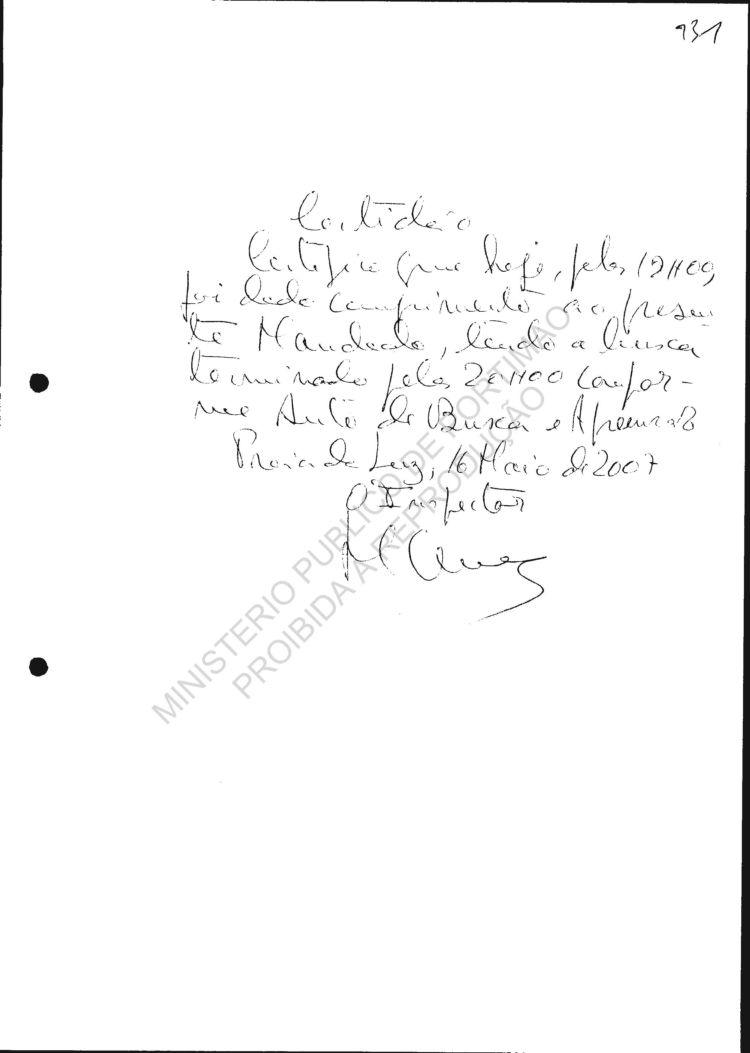 931
Certidão
Certifico que hoje, pelas 19H00,
foi dado cumprimento ao presen
te Mandado, tendo a busca
terminado pelas 20H00 confor-
me Auto de Busca e Apreensão
Praia da Luz, 16 Maio de 2007
O Inspector
MINISTERIO PUBLICO DE PORTIMAO
PROIBIDA A REPRODUÇÃO